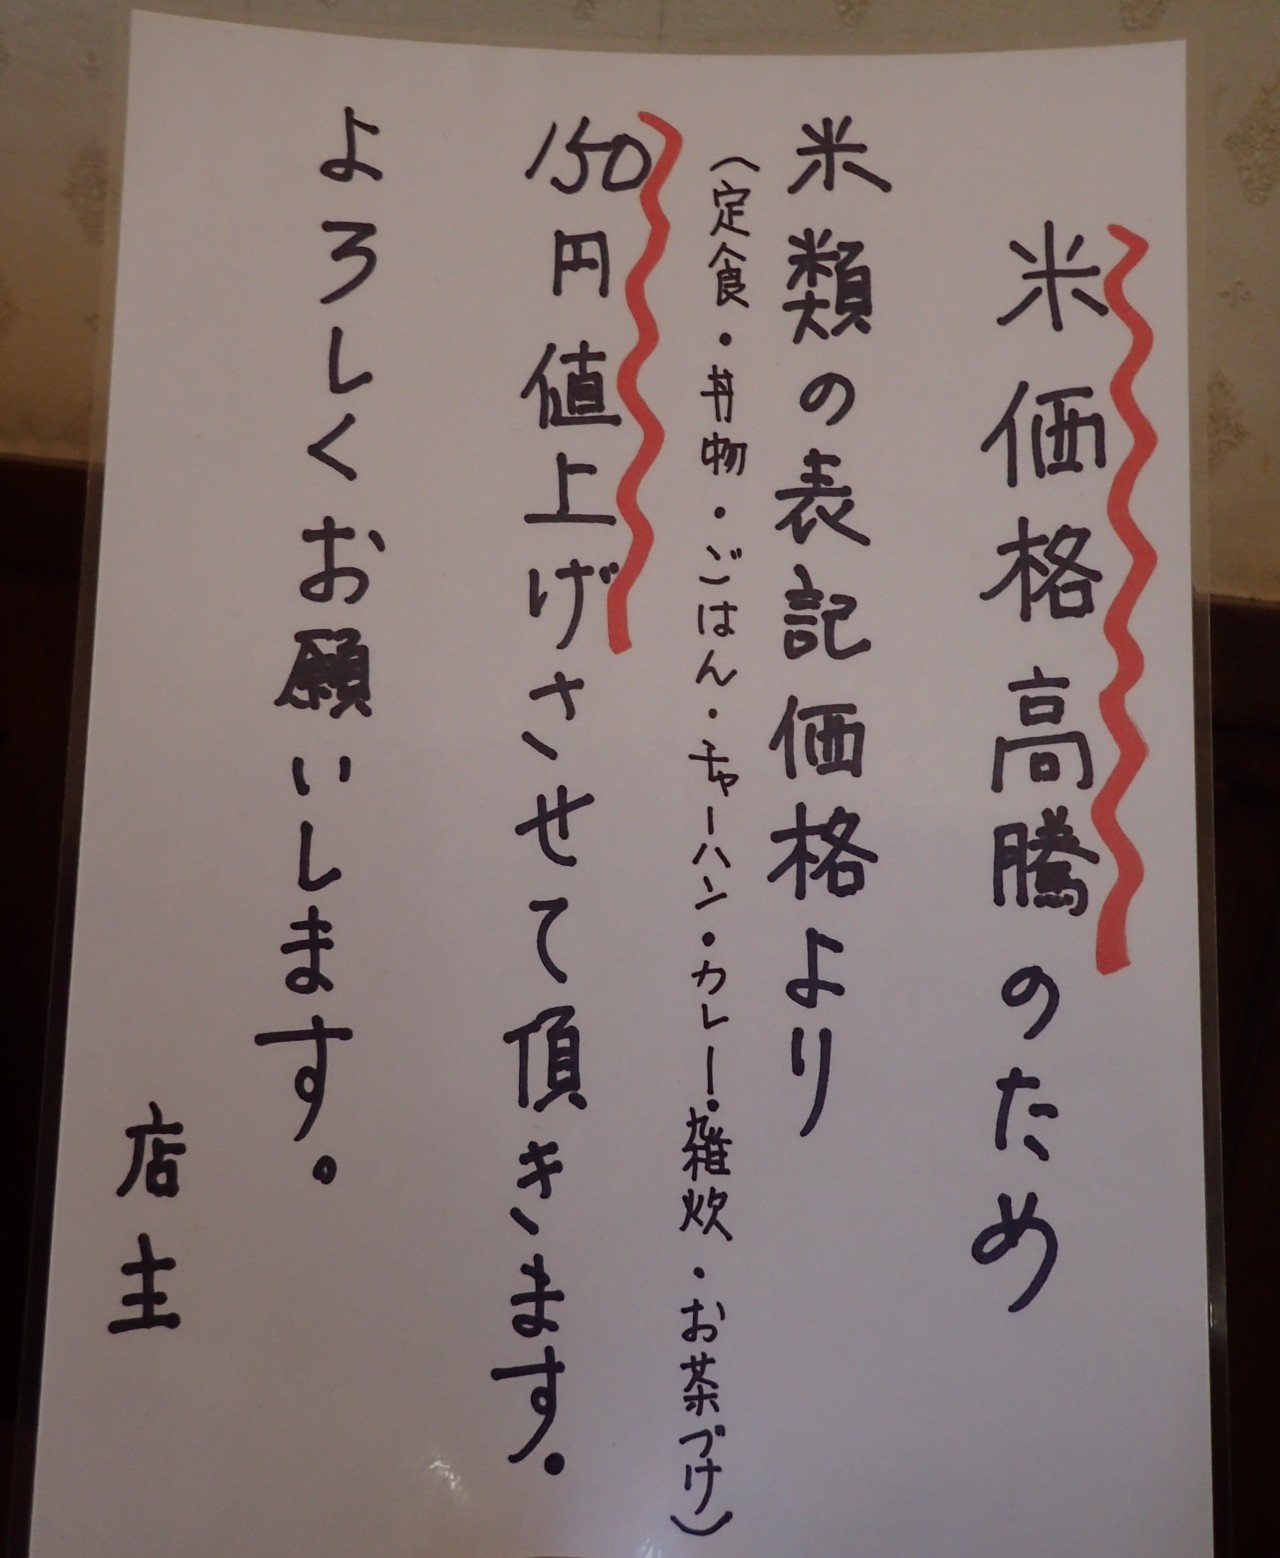 米価格高騰のため
米類の表記価格より
(定食・丼物・ごはん・チャーハン・カレー・雑炊・お茶づけ)
150円値上げさせて頂きます。
よろしくお願いします。
店主